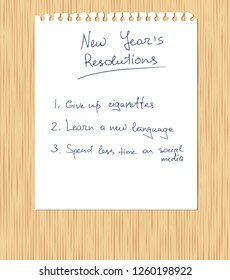 New Year's
Resolutions
1. Give up cigarettes
2. Learn a new language
3. Spend less time on social
media
shutterstock.com · 1260198922